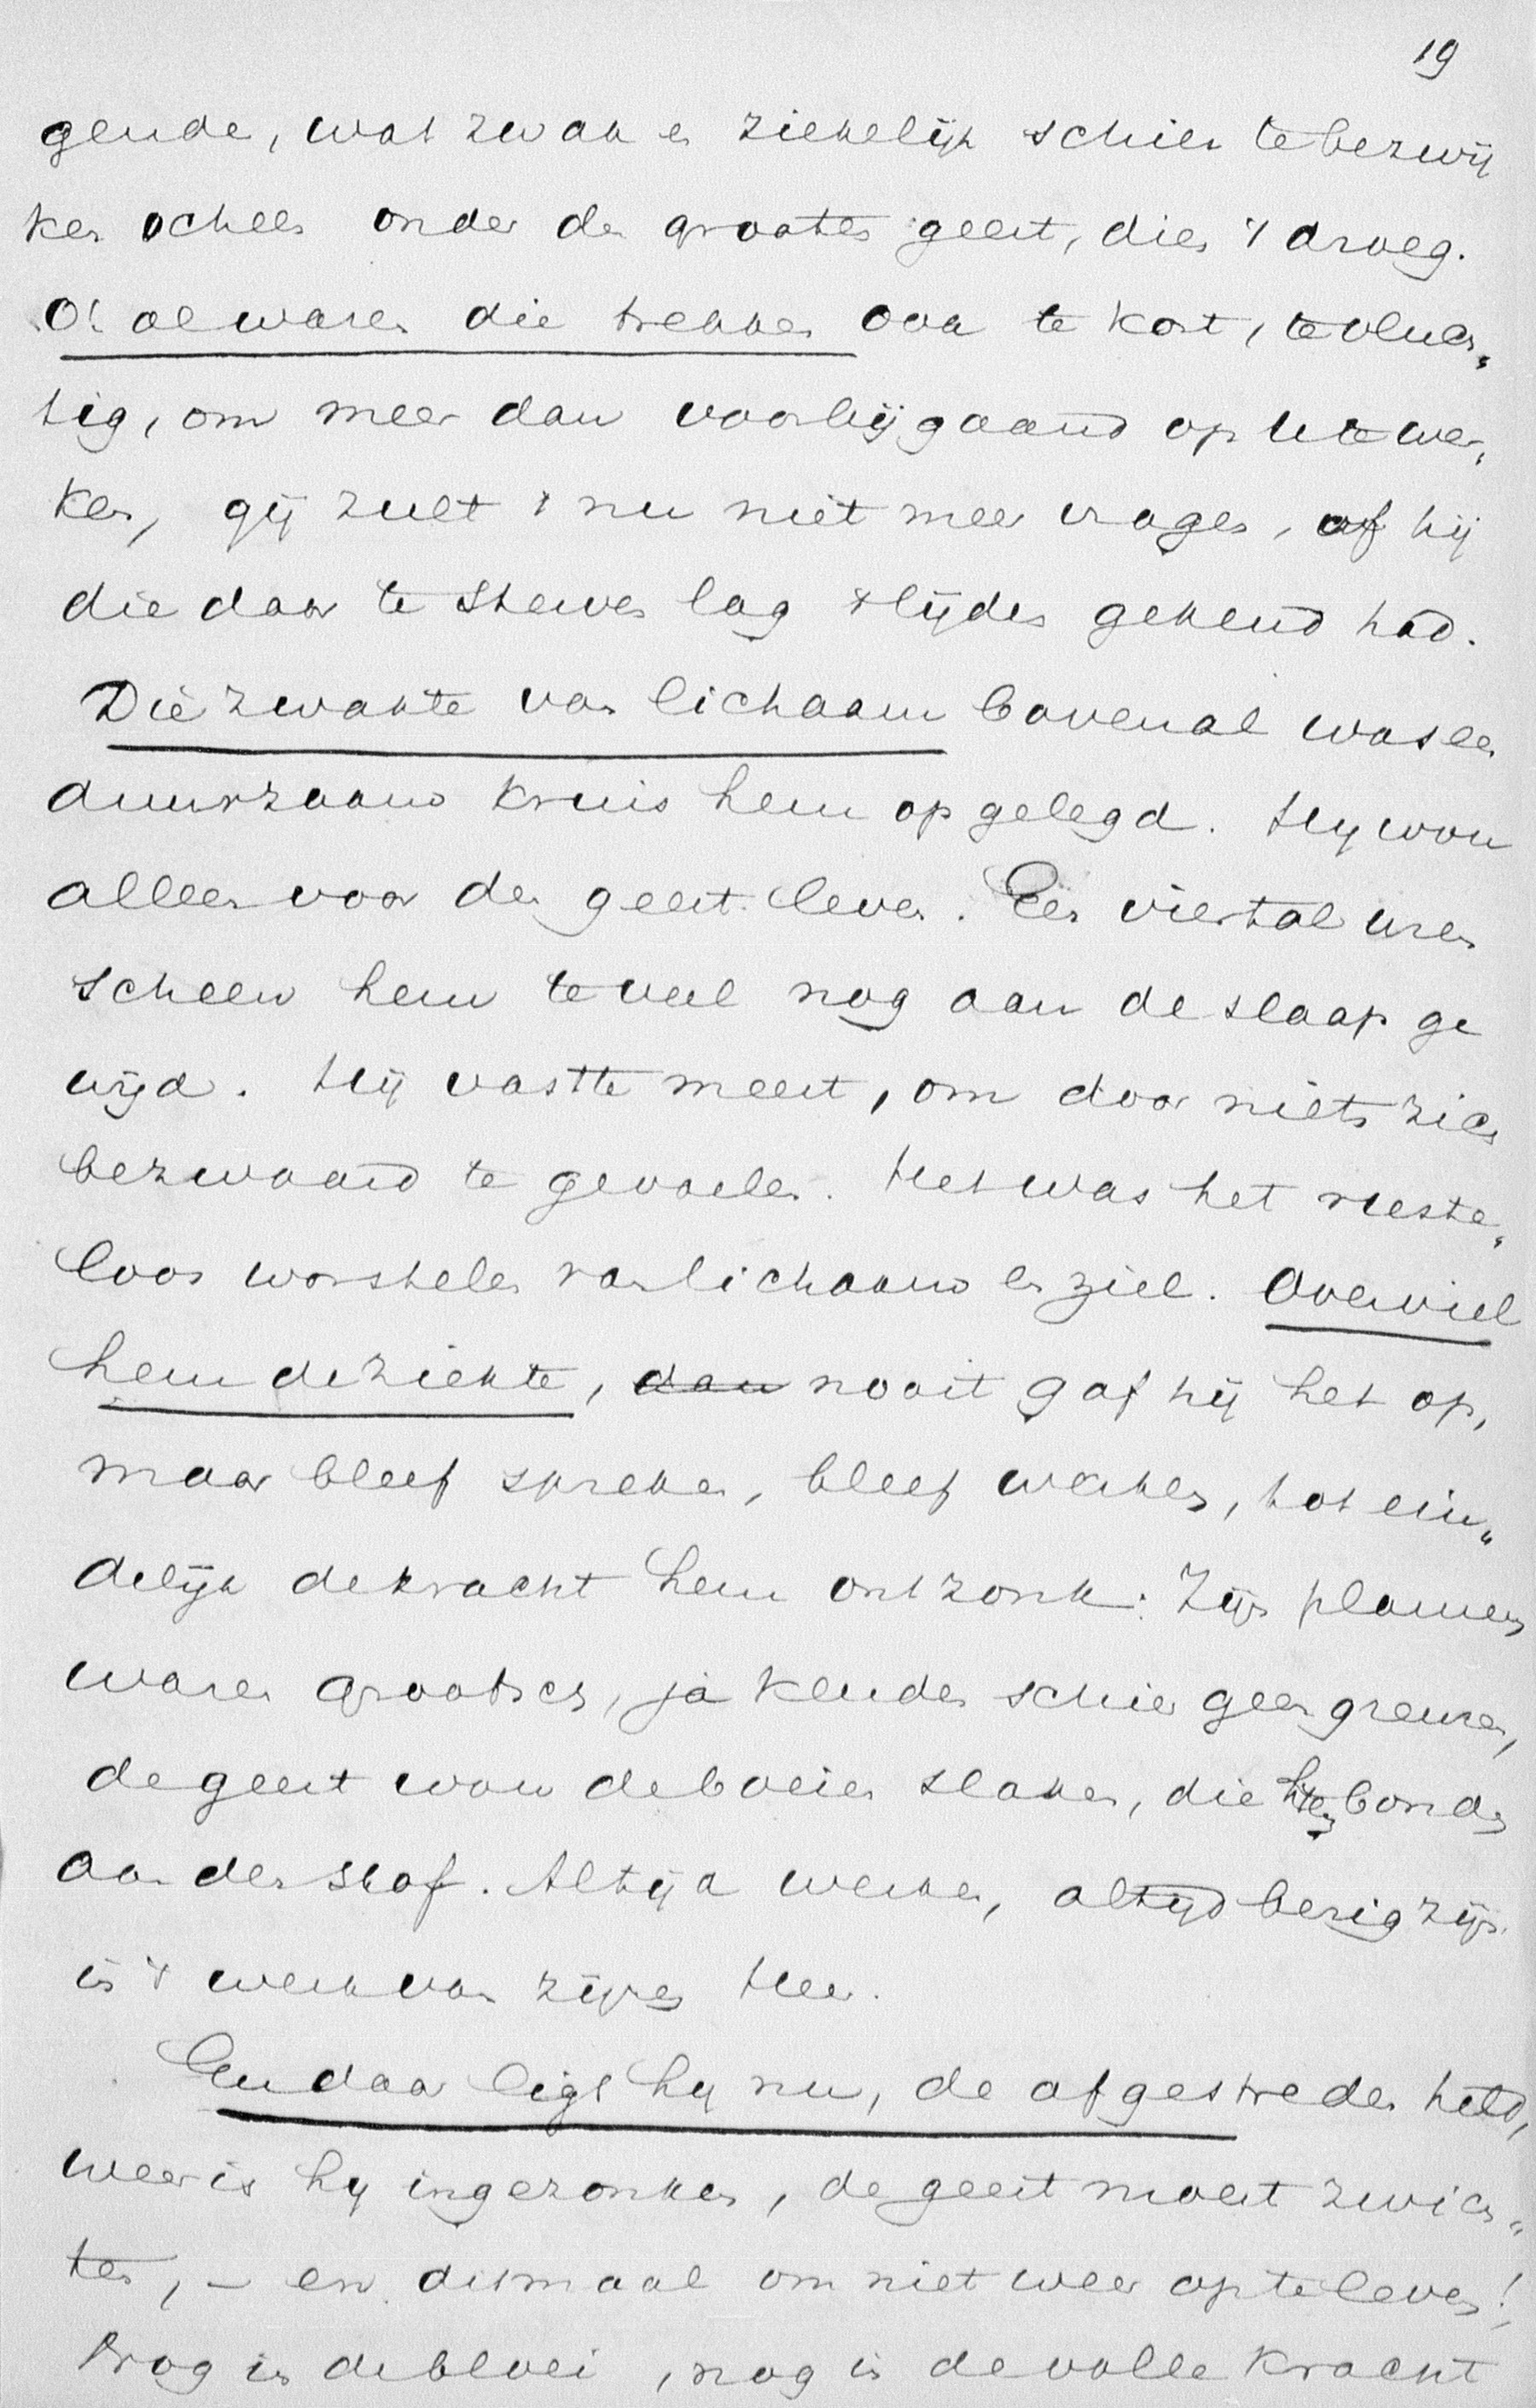 19
gende, wat zwak en ziekelijk schier te bezwij
ken scheen onder den grooten geest, dien 't droeg.
Of al waren die trekken ook te kort, te vluch„
tig, om meer dan voorbijgaand op U te wer„
ken, gij zult 't nu niet meer vragen, of hij
die daar te sterven lag 't lijden gekend had.
Die zwakte van lichaam bovenal was een
duurzaam kruis hem opgelegd. Hij wou
alleen voor den geest leven. Een viertal uren
scheen hem te veel nog aan de slaap ge
wijd. Hij vastte meest, om door niets zich
bezwaard te gevoelen. Het was het ruste„
loos worstelen van lichaam en ziel. Overviel
hem de ziekte, dan nooit gaf hij het op,
maar bleef spreken, bleef werken, tot ein„
delijk de kracht hem ontzonk. Zijn plannen
waren grootsch, ja kenden schier geen grenzen,
de geest wou de boeien slaken, die hem bonden
aan de stof. Altijd werken, altijd bezig zijn
is 't werk van zijnen Heer.
En daar ligt hij nu, de afgestreden held,
weer is hij ingezonken, de geest moest zwich„
ten, – en ditmaal om niet weer op te leven!
Nog is de bloei, nog is de volle kracht